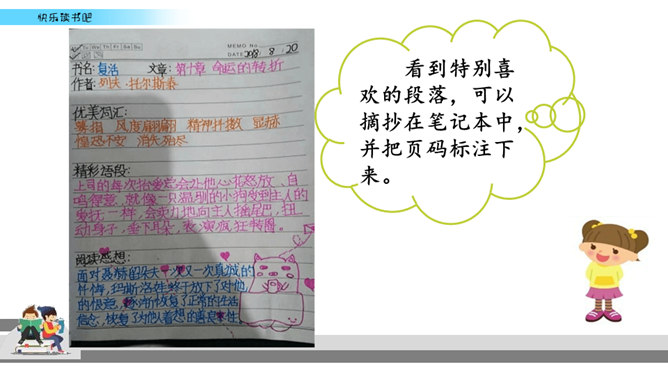 快乐读书吧
Mo Tu We Th Fr Sa Su
MEMO No.
DATE 2018 / 8 / 20
书名:复活 文章:第十章 命运的转折
作者:列夫·托尔斯泰
优美词汇:
风度翩翩 精神抖擞
惶恐不安 消失殆尽
精彩语段:
上司的每次抬爱定会让他心花怒放、自
鸣得意,就像一只温驯的小狗受到主人的
爱抚一样,会卖力地向主人摇尾巴,扭
动身子,垂下耳朵,表演疯狂转圈。
阅读感想:
面对聂赫留朵夫一次又一次真诚的
忏悔,玛斯洛娃终于放下了对他
的恨意,恢复了正常的生活
信念,恢复了为他人着想的善良本性。
看到特别喜
欢的段落,可以
摘抄在笔记本中,
并把页码标注下
来。